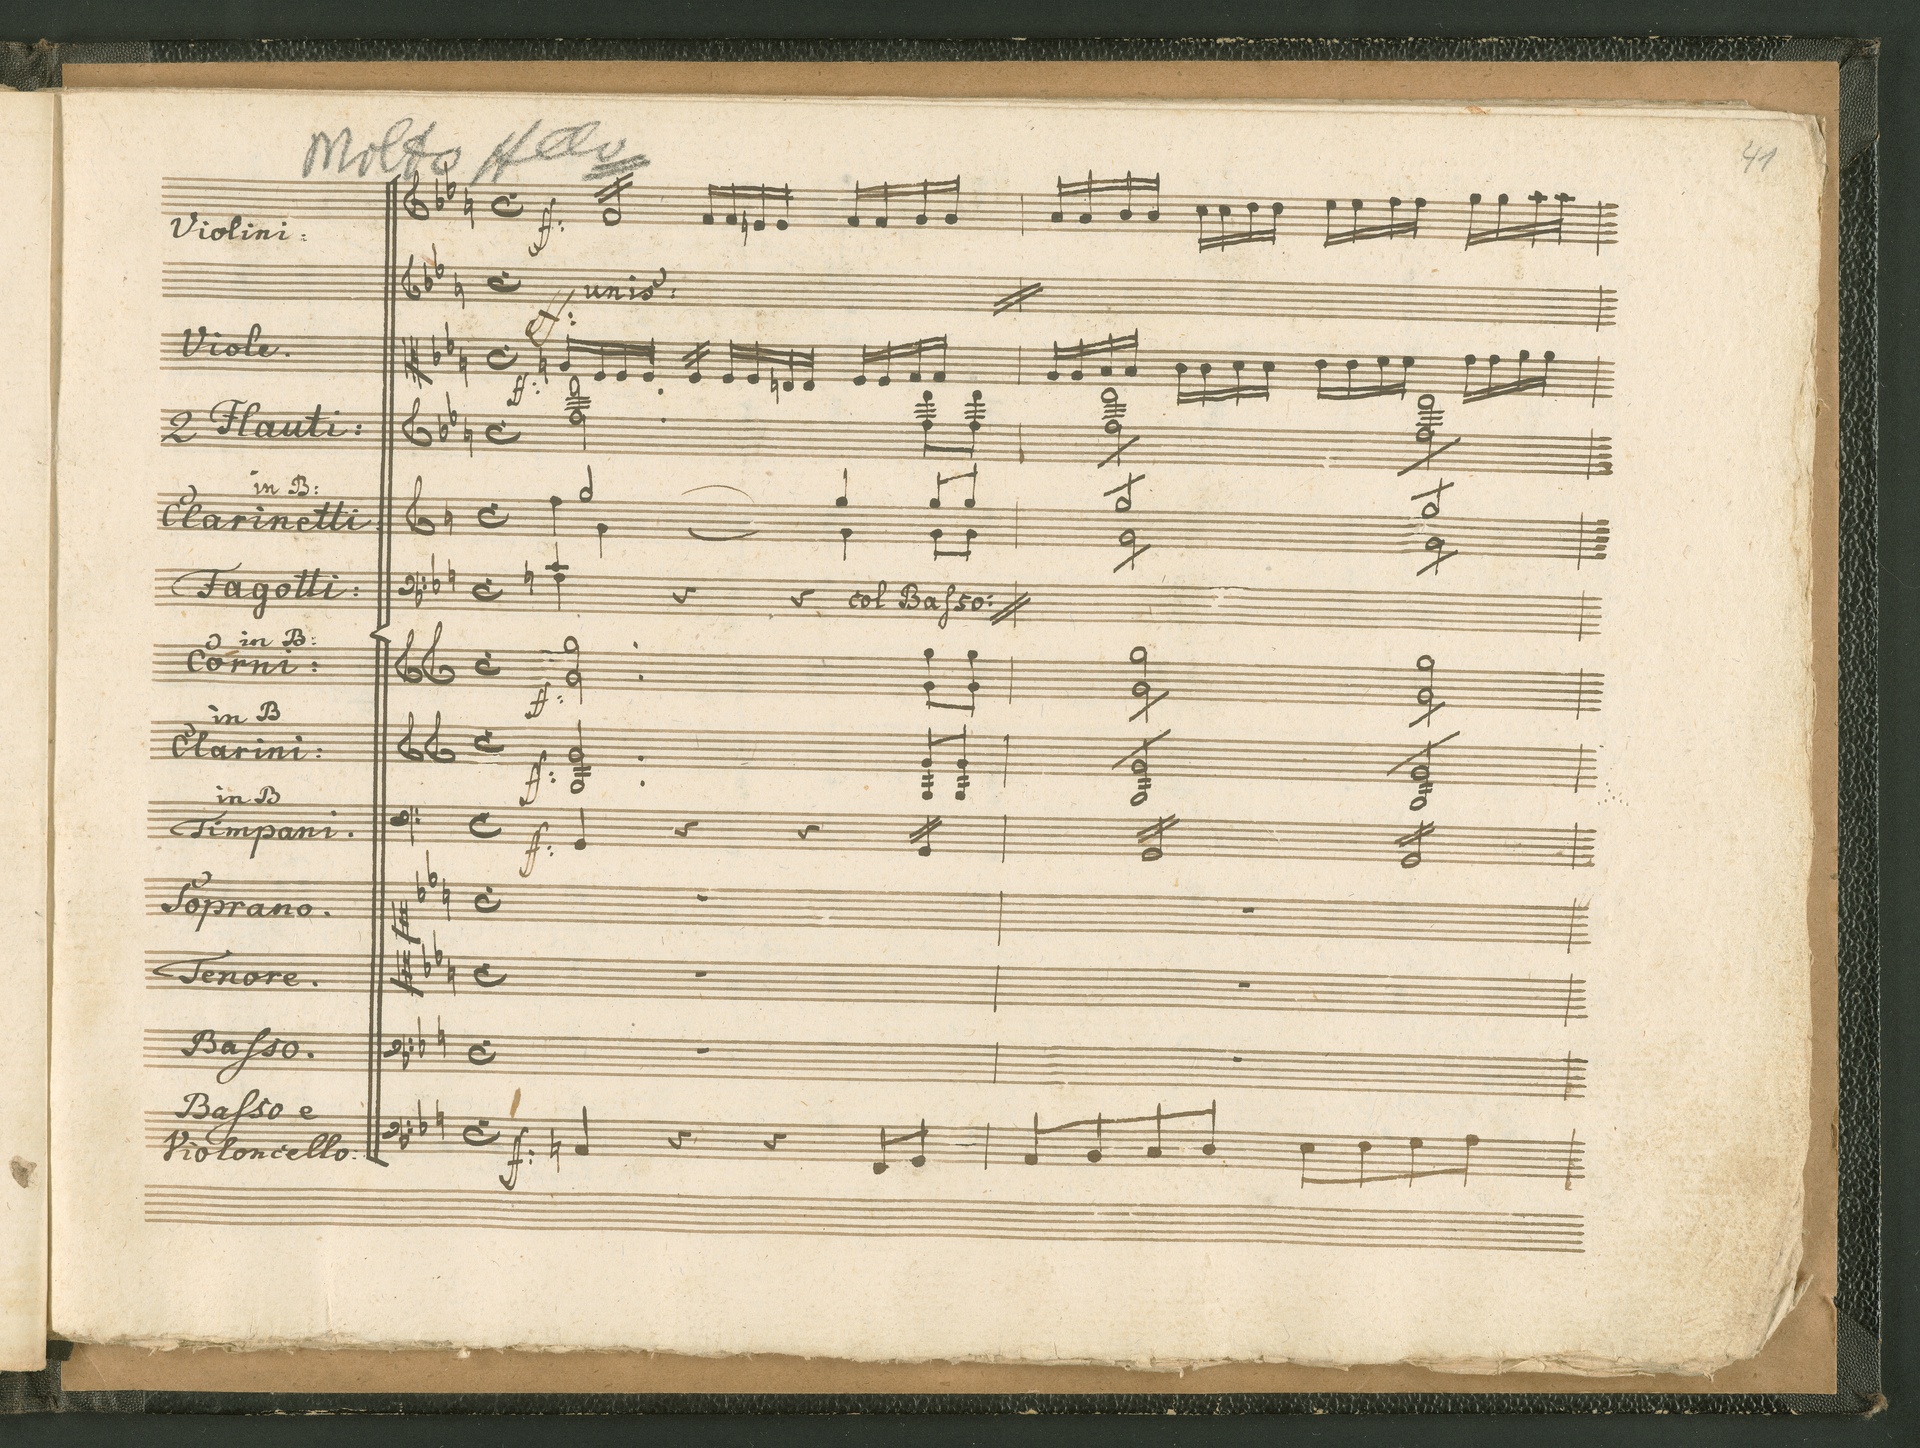 Molto All
41
Violini:
f:
unis:
ff:
Viole.
ff:
2 Flauti:
in B:
Clarinetti
Fagotti:
col Baſso:
2 in B:
Corni:
ff:
in B
Clarini:
ff:
in B
Timpani.
f:
Soprano.
Tenore.
Baſso.
Baſso e
Violoncello:
f: